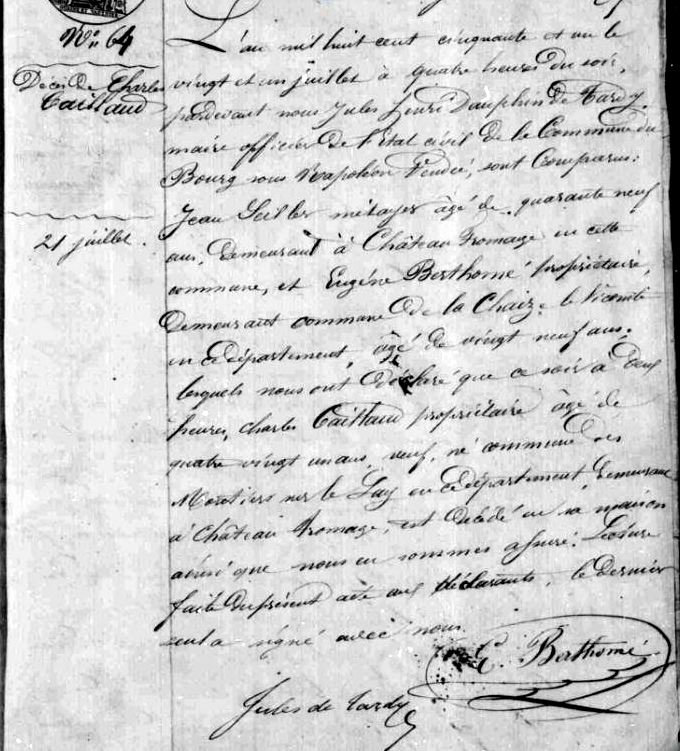 N° 64
Décès De Charles
Caillaud
21 juillet.
L'an mil huit cent cinquante et un le
vingt et un juillet à quatre heures du soir,
pardevant nous Jules Henri Dauphin De Tardy,
maire officier De l'état civil De la Commune du
Bourg sous Napoléon Vendée, sont Comparus:
Jean métayer âgé de quarante neuf
ans, Demeurant à Château Fromage en cette
commune, et Eugène Berthomé propriétaire,
Demeurant commune De la Chaize le Vicomte
en ce Département, âgé de vingt neuf ans;
lesquels nous ont Déclaré que ce soir à Deux
heures, Charles Caillaud propriétaire âgé de
quatre vingt un ans, veuf, né commune Des
Moutiers sur le Lay en ce Département, Demeurant
à Château Fromage, est Décédé en sa maison
ainsi que nous en sommes assuré. Lecture
faite Du présent acte aux déclarants, le Dernier
seul a signé avec nous.
E. Berthomé
Jules de Tardy